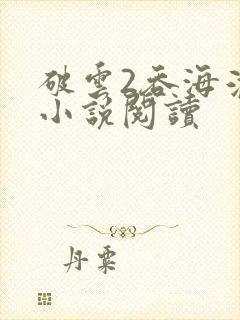 破雲2吞海淮
小說閱讀
丹粟